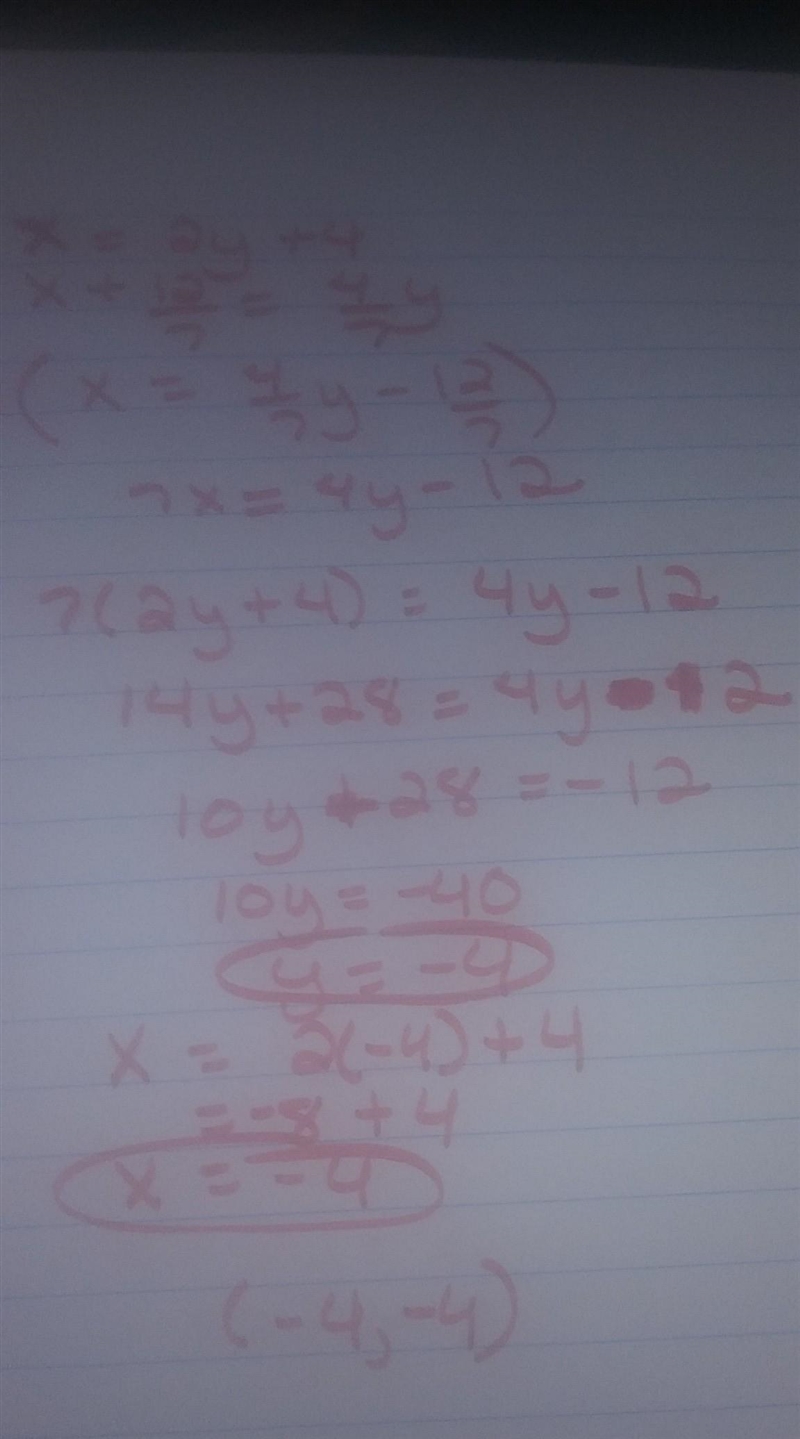 x = 2y + 4
x + 12/7 = 4/7 y
( x = 4/7 y - 12/7 )
7x = 4y - 12
7(2y + 4) = 4y - 12
14y + 28 = 4y - 12
10y + 28 = -12
10y = -40
y = -4
x = 2(-4) + 4
= -8 + 4
x = -4
(-4, -4)